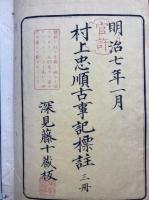 官許
明治七年一月
村上忠順古事記標註 三冊
深見藤十蔵板